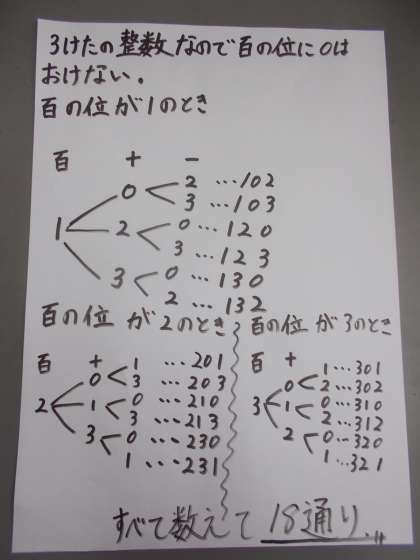 3けたの整数なので百の位に0は
おけない。
百の位が1のとき
百 十 一
1 0 2 …102
3 …103
2 0 …120
3 …123
3 0 …130
2 …132
百の位が2のとき
百 十
2 0 1 …201
3 …203
1 0 …210
3 …213
3 0 …230
1 …231
百の位が3のとき
百 十
3 0 1 …301
2 …302
1 0 …310
2 …312
2 0 …320
1 …321
すべて数えて 18通り